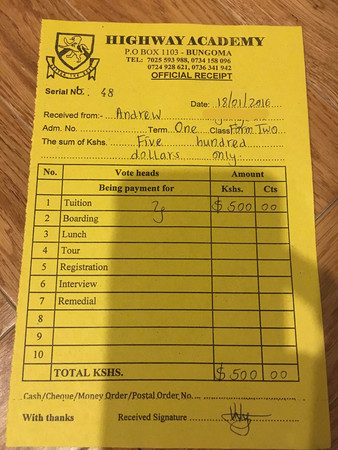 HIGHWAY ACADEMY
P.O BOX 1103 - BUNGOMA
TEL: 7025 593 988, 0734 158 096
0724 928 621, 0736 341 942
OFFICIAL RECEIPT
Serial No. 48
Date: 18/01/2016
Received from:- Andrew
Adm. No. Term One Class Form Two
The sum of Kshs. Five hundred
dollars only.
No. Vote heads Amount
Being payment for Kshs. Cts
1 Tuition $ 500 00
2 Boarding
3 Lunch
4 Tour
5 Registration
6 Interview
7 Remedial
8
9
10
TOTAL KSHS. $ 500 00
Cash/Cheque/Money Order/Postal Order No.
With thanks Received Signature